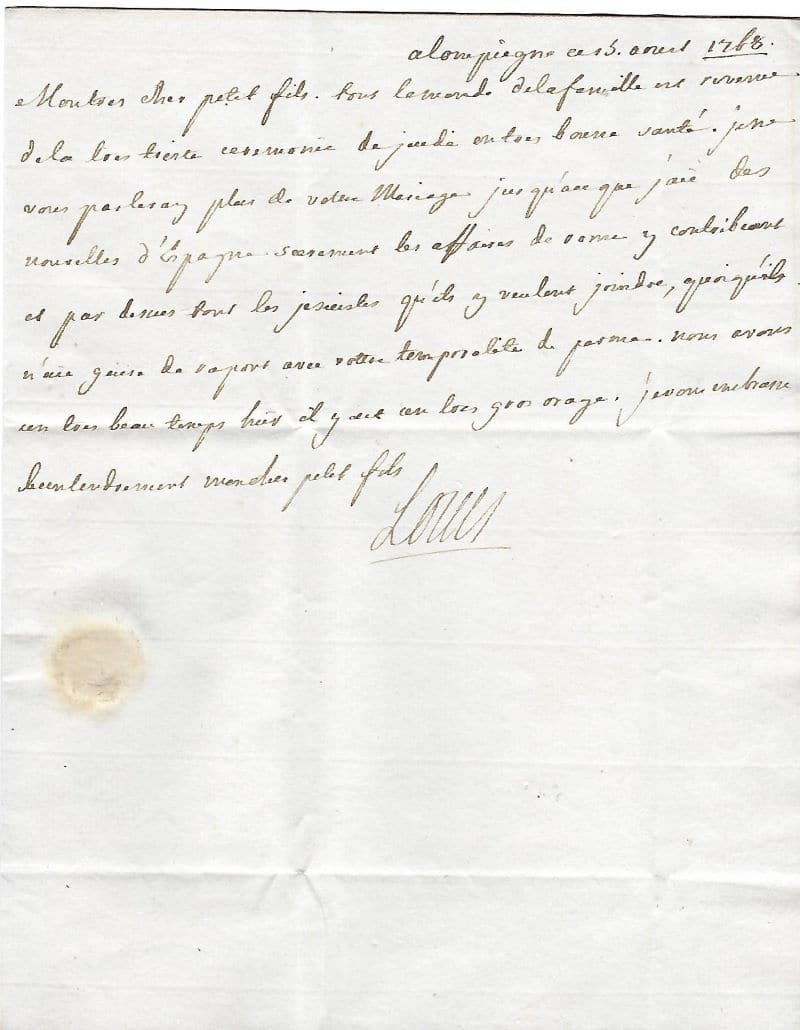 a Compiegne ce 15. aoust 1768.
Mon tres cher petit fils. tout le monde de la famille est revenue
de la tres triste ceremonie de jeudi en tres bonne santé. je ne
vous parleray plus de votre Mariage jusqu'a ce que j'aie des
nouvelles d'Espagne seurement les affaires de rome y contribuent
et par dessus tout les jesuistes qu'ils y veulent joindre, quoiqu'ils
n'aie guere de raport avec vottre temporalité de parme. nous avons
un tres beau temps hier il y eut un tres gros orage. je vous embrasse
bien tendrement mon cher petit fils
Louis